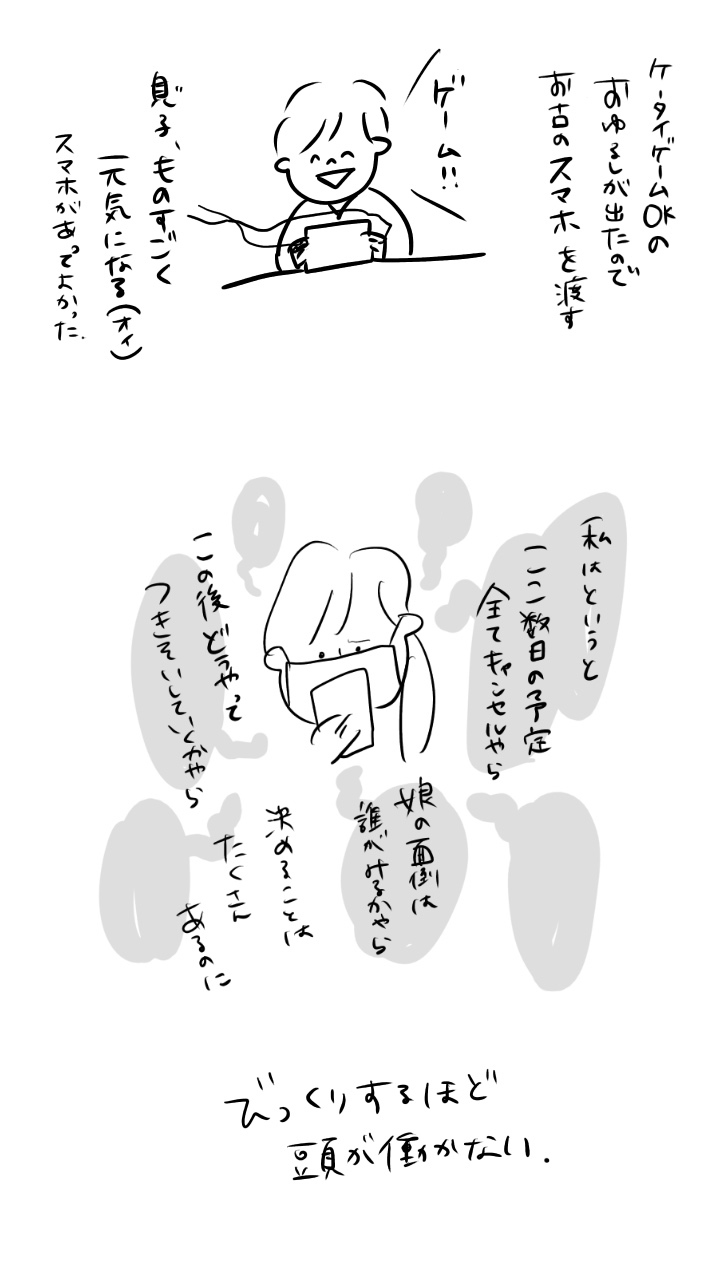 ケータイゲームOKの
おゆるしが出たので
お古のスマホを渡す
ゲーム!!
息子、ものすごく
元気になる(オイ)
スマホがあってよかった.
私はというと
ここ数日の予定
全てキャンセルやら
この後どうやって
つきそいしていくかやら
娘の面倒は
誰がみるかやら
決めることは
たくさん
あるのに
びっくりするほど
頭が働かない.